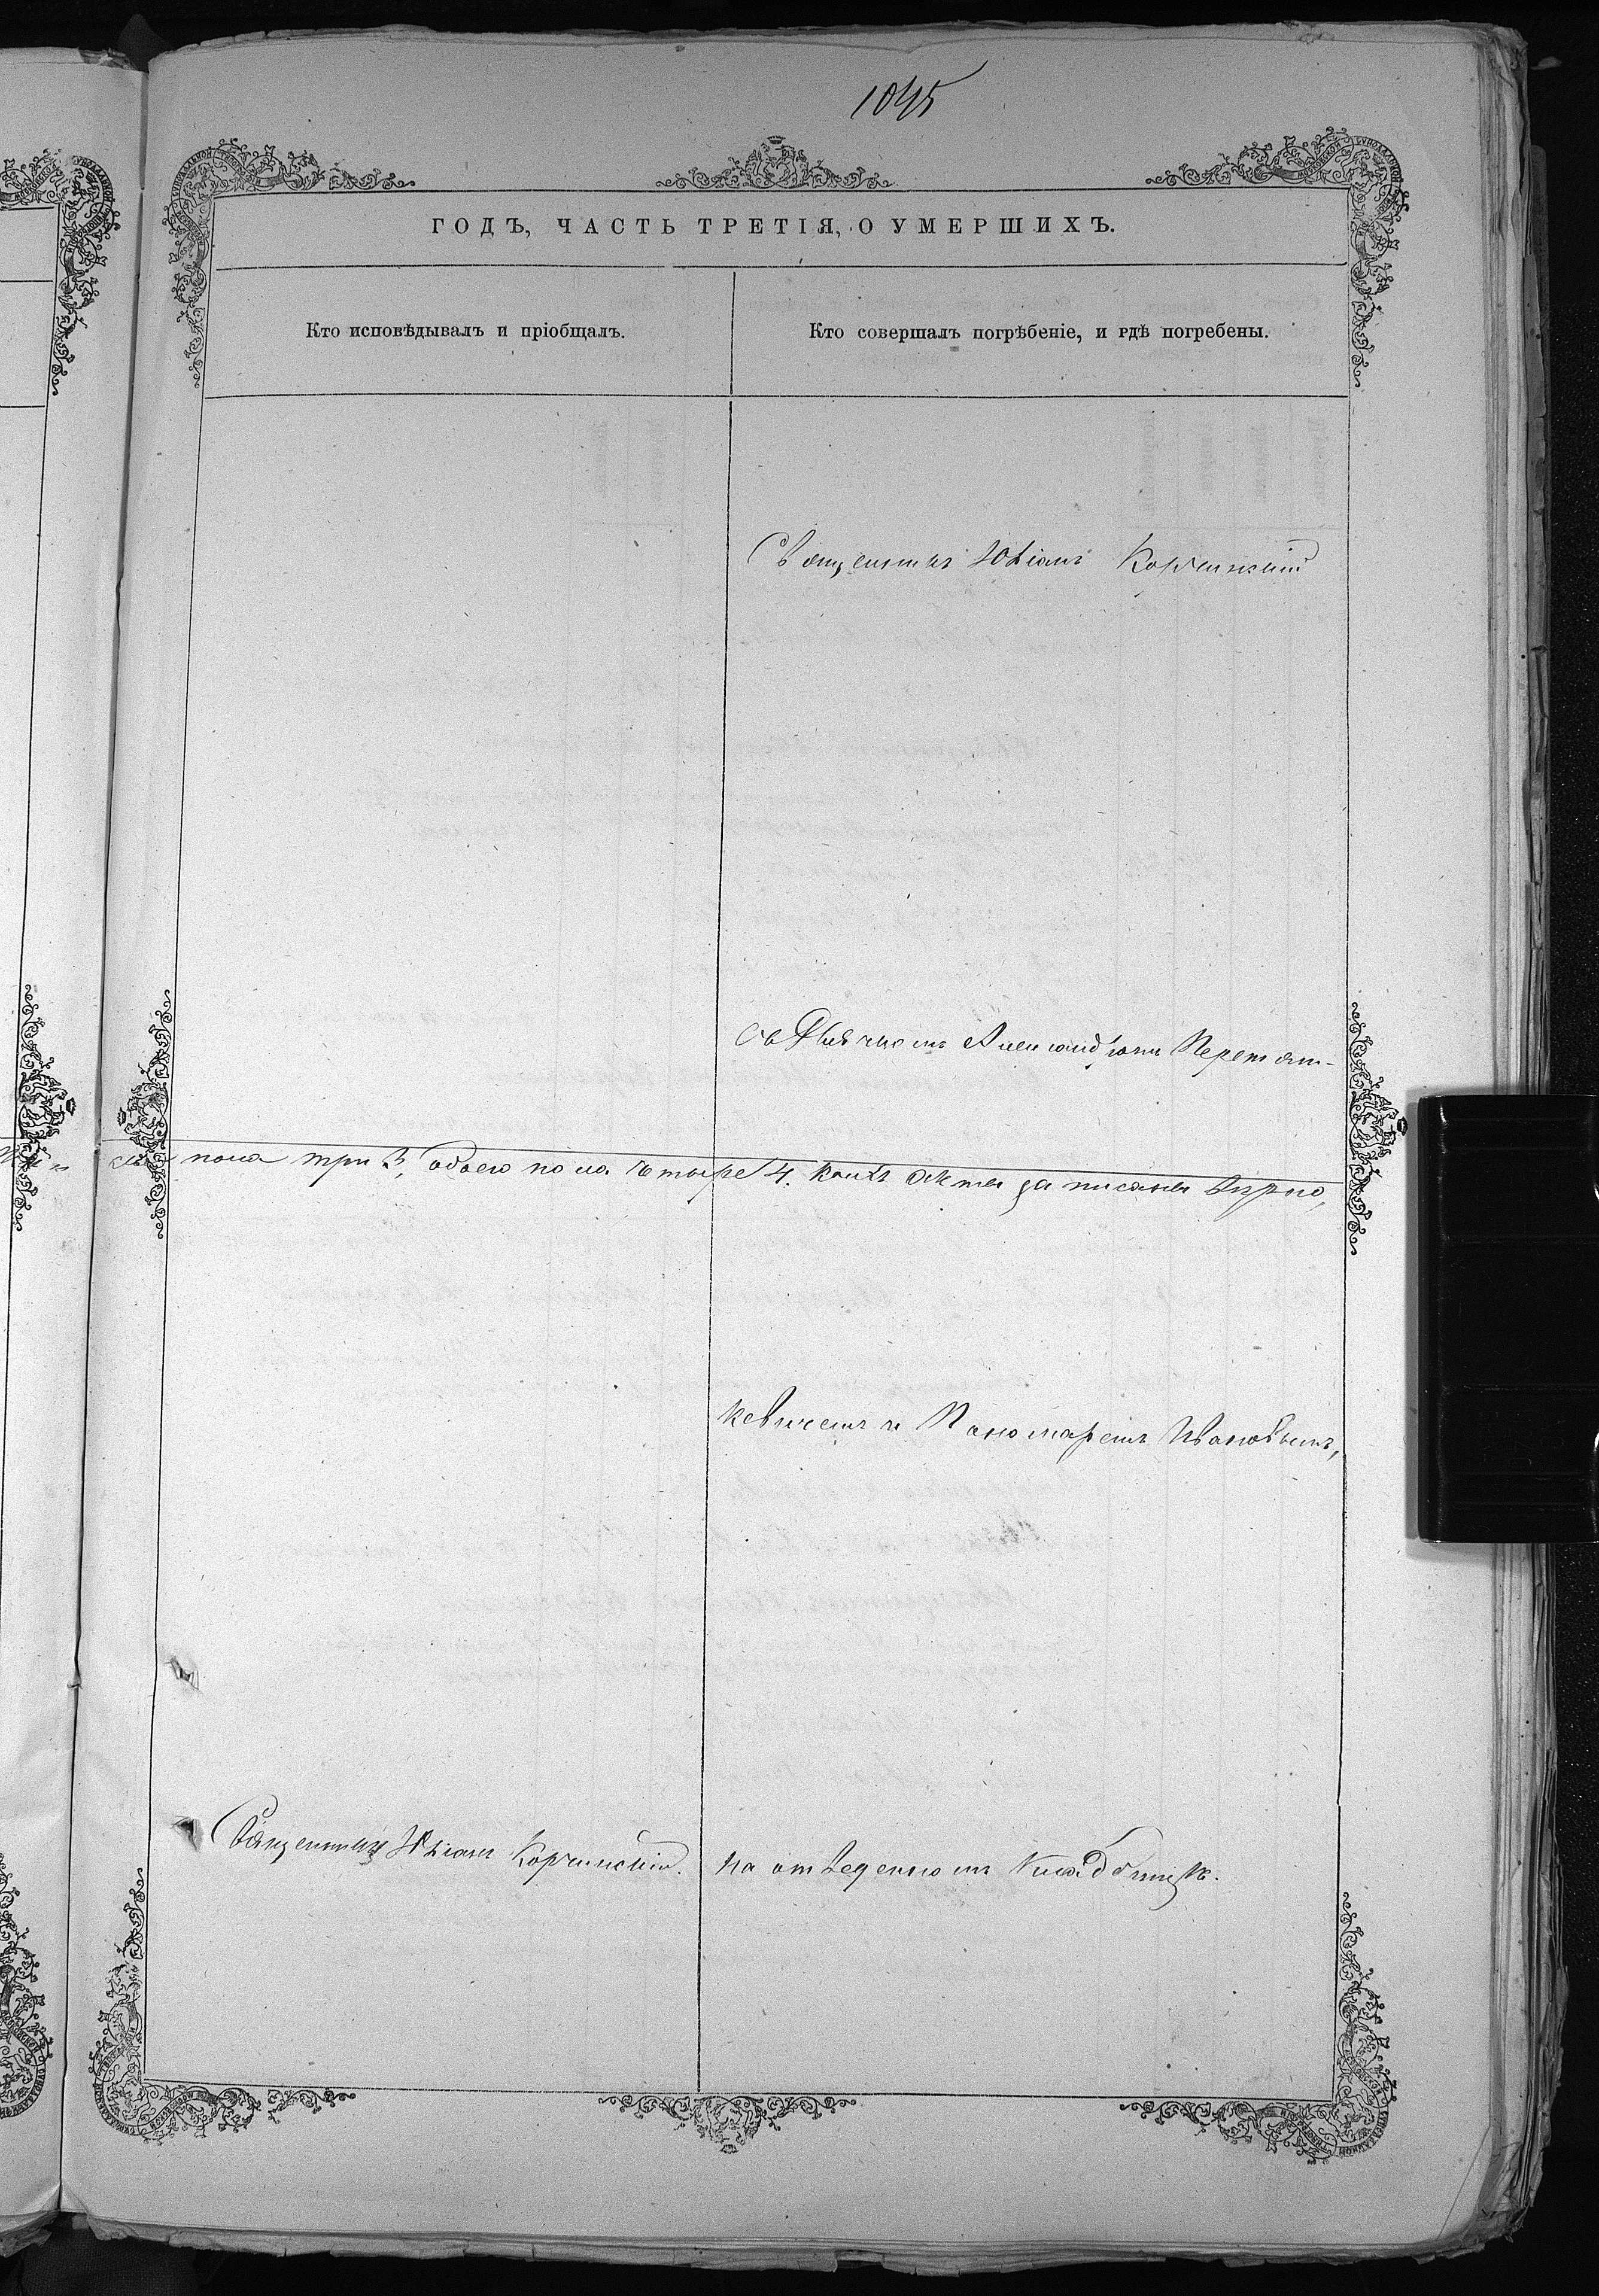 1045
ГОДЪ, ЧАСТЬ ТРЕТІЯ, О УМЕРШИХЪ.
Кто исповѣдывалъ и пріобщалъ.
Кто совершалъ погрѣбеніе, и гдѣ погребены.
Священникъ Юліанъ Корчинскій
съ Дьячкомъ Александромъ Перетят-
пола три 3, обоего пола четыре 4. Коихъ акты записаны вѣрно,
кевичемъ и Паномаремъ Ивановымъ,
Священникъ Юліанъ Корчинскій.
на отведенномъ Кладбищѣ.